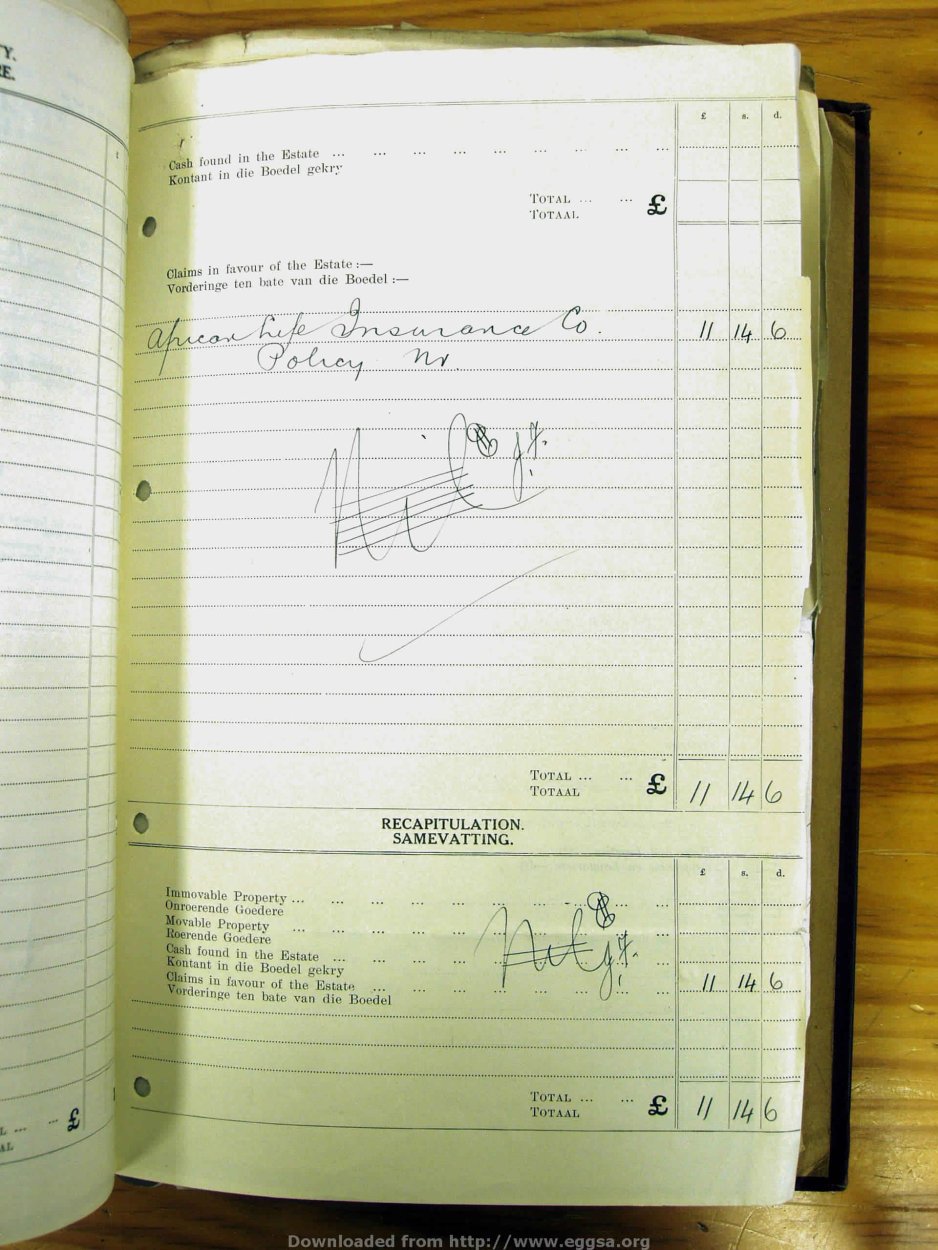 Y.
E.
£ s. d.
Cash found in the Estate ... ... ... ... ... ... ... ... ...
Kontant in die Boedel gekry
TOTAL ... ... £
TOTAAL
Claims in favour of the Estate :—
Vorderinge ten bate van die Boedel :—
African Life Insurance Co. 11 14 6
Policy Nr.
Nil
TOTAL ... ... £ 11 14 6
TOTAAL
RECAPITULATION.
SAMEVATTING.
£ s. d.
Immovable Property ... ... ... ... ... ... ... ...
Onroerende Goedere
Movable Property ... ... ... ... ... ... ... ...
Roerende Goedere
Cash found in the Estate ... ... ... ... ... ...
Kontant in die Boedel gekry
Claims in favour of the Estate ... ... ... ... ... ... ... 11 14 6
Vorderinge ten bate van die Boedel
Nil
TOTAL ... ... £ 11 14 6
TOTAAL
L ... ... £
AL
Downloaded from http://www.eggsa.org